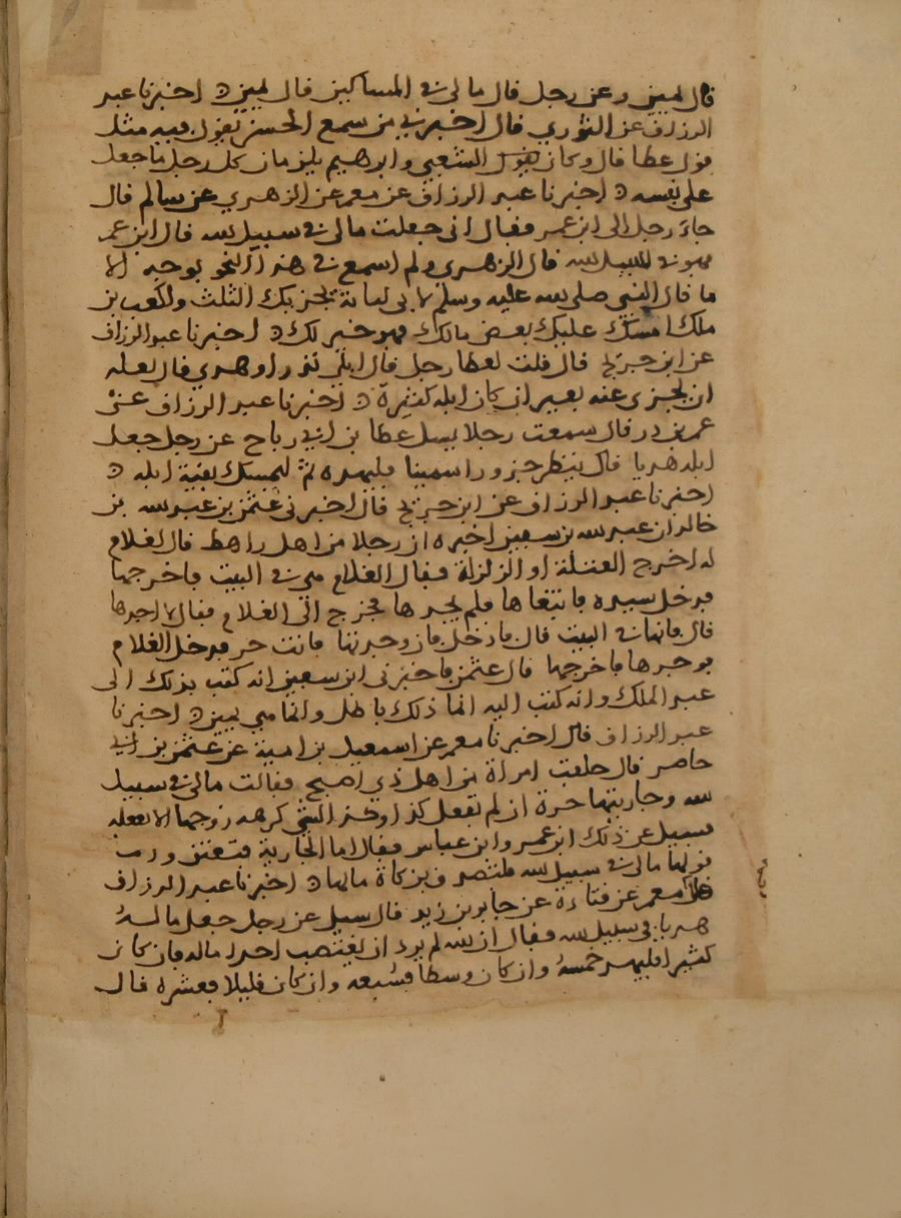 قال يمين وعن رجل قال مالي في المساكين قال يمين ه اخبرنا عبد
الرزاق عن الثوري قال اخبرني من سمع الحسن يقول فيه مثل
قول عطا قال وكان يقول الشعبي وابرهيم يلزمان كل رجل ما جعل
على نفسه ه اخبرنا عبد الرزاق عن معمر عن الزهري عن سالم قال
جاء رجل الى ابن عمر فقال اني جعلت مالي في سبيل الله قال ابن عمر
فهو في سبيل الله قال الزهري ولم اسمع في هذا النحو بوجه الا
ما قال النبي صلى الله عليه وسلم لابي لبابة يجزيك الثلث ولكعب بن
ملك امسك عليك بعض مالك فهو خير لك ه اخبرنا عبد الرزاق
عن ابن جريج قال قلت لعطا رجل قال ابلي نذر او هدي قال لعله
ان يجزي عنه بعير ان كان ابله كثيرة ه اخبرنا عبد الرزاق عن
عمر بن ذر قال سمعت رجلا يسل عطا بن ابي رباح عن رجل جعل
ابله هديا قال ينظر جزورا سمينا فليهده ثم ليمسك بقية ابله ه
اخبرنا عبد الرزاق عن ابن جريج قال اخبرني عثمن بن عبد الله بن
خالد ان عبد الله بن سفين اخبره ان رجلا من اهل راهط قال لغلام
له اخرج العتلة او الزلزلة فقال الغلام هي في البيت فاخرجها
فدخل سيده فابتغاها فلم يجدها فخرج الى الغلام فقال لا اجدها
قال فانها في البيت قال فادخل فان وجدتها فانت حر فدخل الغلام
فوجدها فاخرجها قال عثمن فاخبرني ابن سفين انه كتب بذلك الى
عبد الملك وانه كتب اليه انما ذلك باطل وانما هي يمين ه اخبرنا
عبد الرزاق قال اخبرنا معمر عن اسمعيل بن امية عن عثمن بن ابي
حاضر قال حلفت امراة من اهل ذي اصبح فقالت مالي في سبيل
الله وجاريتها حرة ان لم تفعل كذا وكذا لشي كرهه زوجها الا تفعله
فسيل عن ذلك ابن عمر وابن عباس فقالا اما الجارية فتعتق واما
قولها مالي في سبيل الله فلتتصدق بزكاة مالها ه اخبرنا عبد الرزاق
عن معمر عن قتادة عن جابر بن زيد قال سيل عن رجل جعل ماله
هديا في سبيل الله فقال ان الله لم يرد ان يغتصب احدا ماله فان كان
كثيرا فليهد خمسه وان كان وسطا فسبعه وان كان قليلا فعشره قال